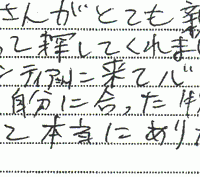 さんがとても親
って探してくれまし
ンティアに来て心
自分に合った
て本当にありが